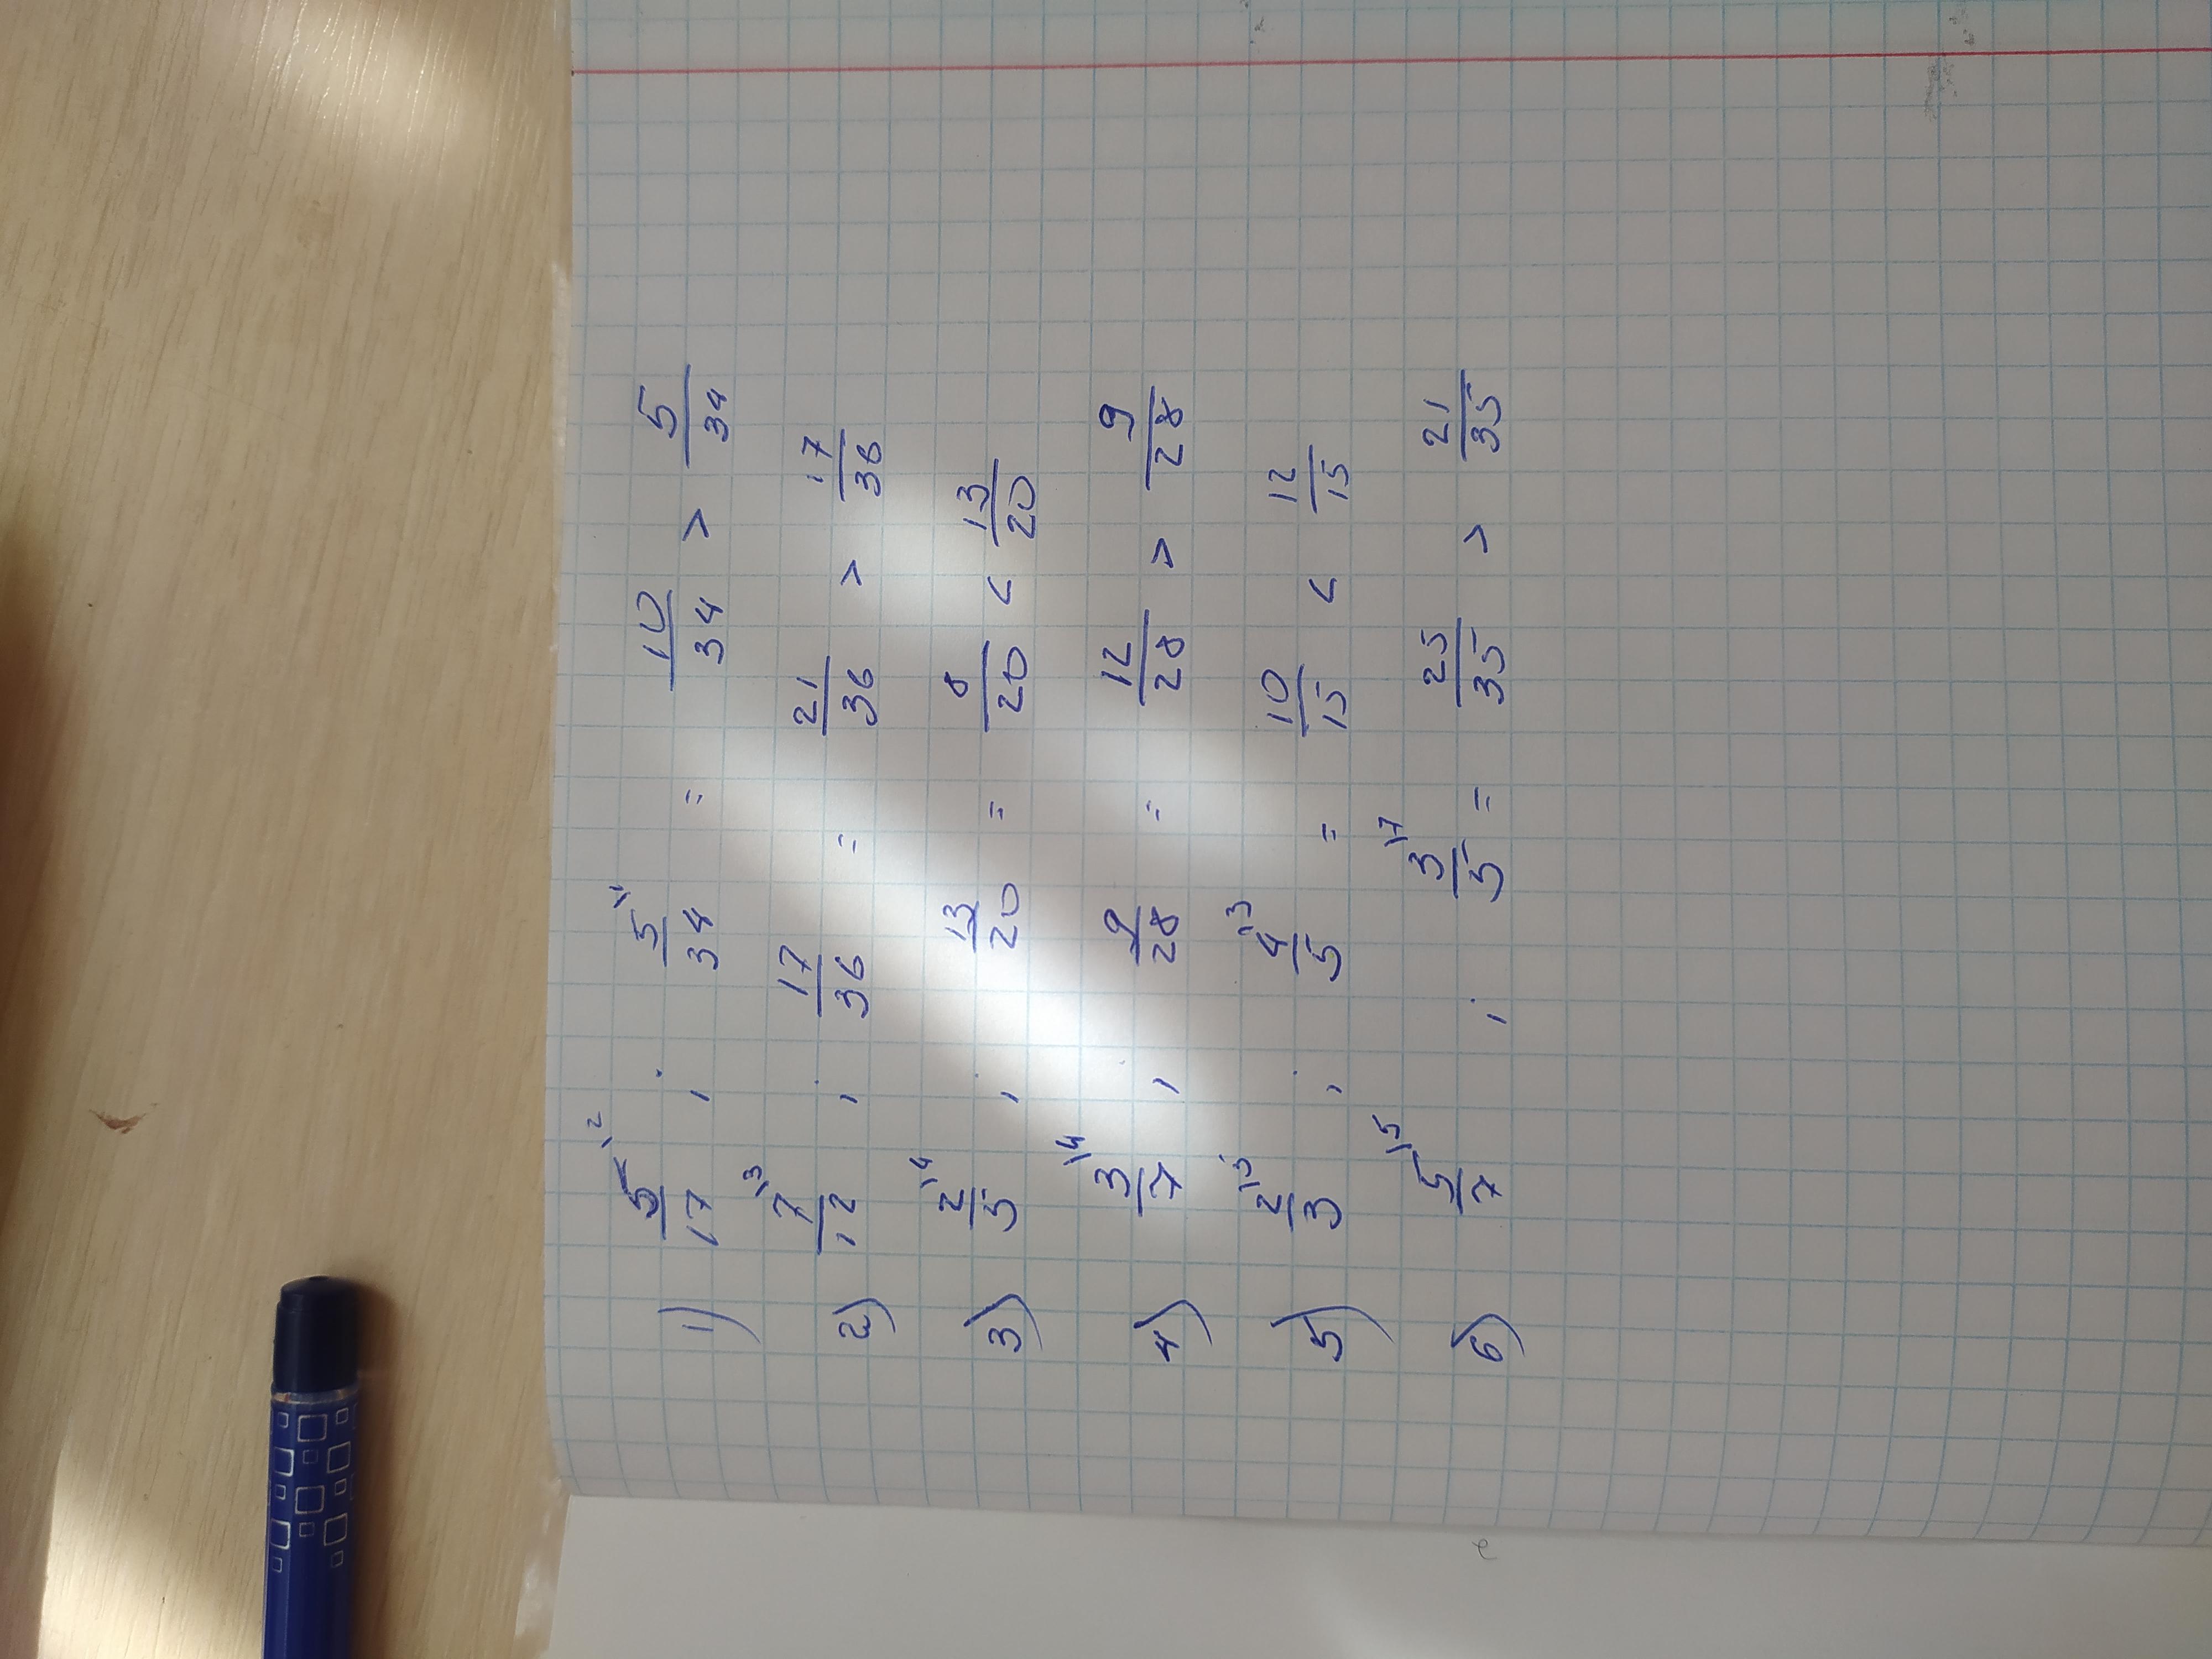 1) 5/17 \2 ; 5/34 \1 = 10/34 > 5/34
2) 7/12 \3 ; 17/36 = 21/36 > 17/36
3) 2/5 \4 ; 13/20 = 8/20 < 13/20
4) 3/7 \4 , 9/28 = 12/28 > 9/28
5) 2/3 \5 ; 4/5 \3 = 10/15 < 12/15
6) 5/7 \5 ; 3/5 \7 = 25/35 > 21/35